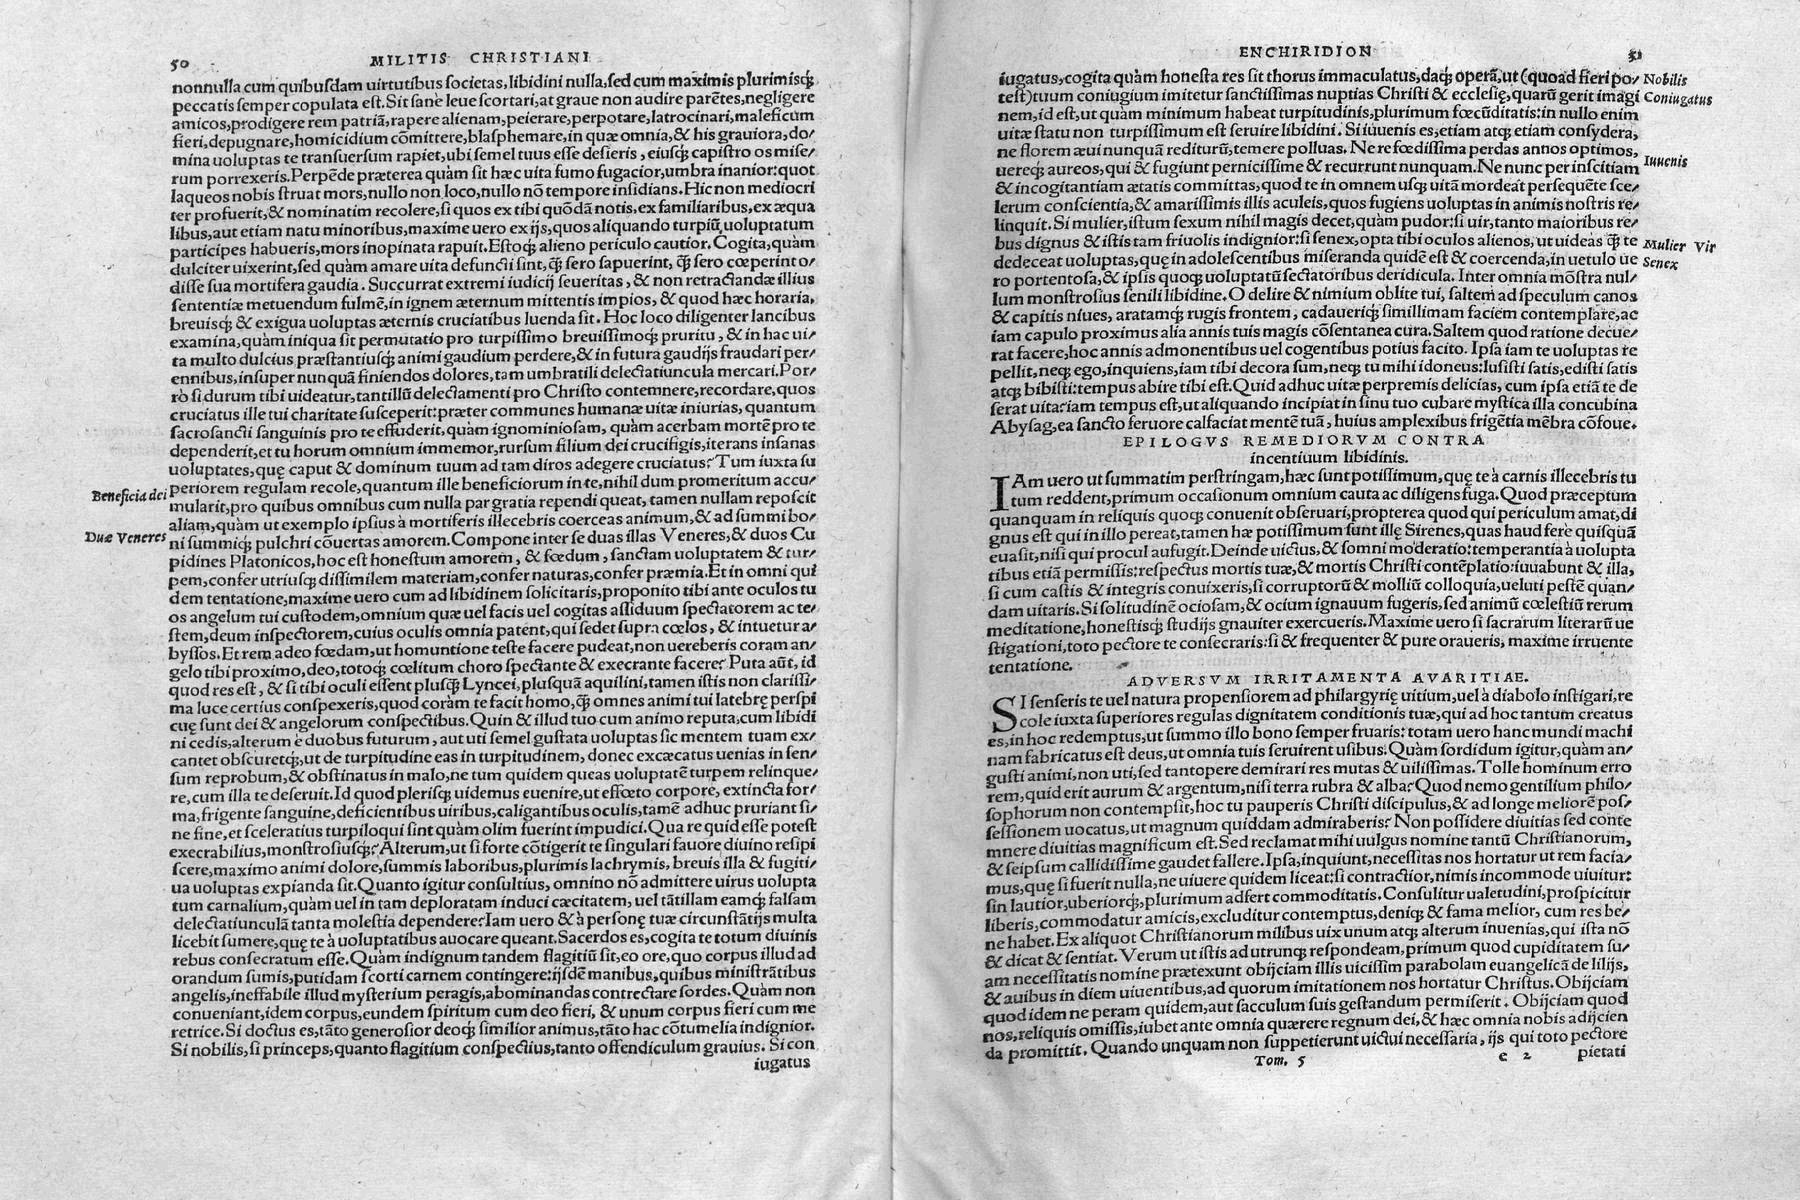 50 MILITIS CHRISTIANI
nonnulla cum quibusdam uirtutibus societas, libidini nulla, sed cum maximis plurimisq́;
peccatis semper copulata est. Sit sanè leue scortari, at graue non audire parētes, negligere
amicos, prodigere rem patriā, rapere alienam, peierare, perpotare, latrocinari, maleficum
fieri, depugnare, homicidium cōmittere, blasphemare, in quæ omnia, & his grauiora, do/
mina uoluptas te transuersum rapiet, ubi semel tuus esse desieris, eiusq́; capistro os mise/
rum porrexeris. Perpēde præterea quàm sit hæc uita fumo fugacior, umbra inanior: quot
laqueos nobis struat mors, nullo non loco, nullo nō tempore insidians. Hic non mediocri
ter profuerit, & nominatim recolere, si quos ex tibi quōdā notis, ex familiaribus, ex æqua
libus, aut etiam natu minoribus, maxime uero ex ijs, quos aliquando turpiū uoluptatum
participes habueris, mors inopinata rapuit. Estoq́; alieno periculo cautior. Cogita, quàm
dulciter uixerint, sed quàm amare uita defuncti sint, q̃ sero sapuerint, q̃ sero cœperint o/
disse sua mortifera gaudia. Succurrat extremi iudicij seueritas, & non retractandæ illius
sententiæ metuendum fulmē, in ignem æternum mittentis impios, & quod hæc horaria,
breuisq́; & exigua uoluptas æternis cruciatibus luenda sit. Hoc loco diligenter lancibus
examina, quàm iniqua sit permutatio pro turpissimo breuissimoq́; pruritu, & in hac ui/
ta multo dulcius præstantiusq́; animi gaudium perdere, & in futura gaudijs fraudari per/
ennibus, insuper nunquā finiendos dolores, tam umbratili delectatiuncula mercari. Por/
rò si durum tibi uideatur, tantillū delectamenti pro Christo contemnere, recordare, quos
cruciatus ille tui charitate susceperit: præter communes humanæ uitæ iniurias, quantum
sacrosancti sanguinis pro te effuderit, quàm ignominiosam, quàm acerbam mortē pro te
dependerit, et tu horum omnium immemor, rursum filium dei crucifigis, iterans insanas
uoluptates, quę caput & dominum tuum ad tam diros adegere cruciatus? Tum iuxta su
periorem regulam recole, quantum ille beneficiorum in te, nihil dum promeritum accu/
Beneficia dei
mularit, pro quibus omnibus cum nulla par gratia rependi queat, tamen nullam reposcit
aliam, quàm ut exemplo ipsius à mortiferis illecebris coerceas animum, & ad summi bo/
ni summiq́; pulchri cōuertas amorem. Compone inter se duas illas Veneres, & duos Cu
Duæ Veneres
pidines Platonicos, hoc est honestum amorem, & fœdum, sanctam uoluptatem & tur/
pem, confer utriusq́; dissimilem materiam, confer naturas, confer præmia. Et in omni qui
dem tentatione, maxime uero cum ad libidinem solicitaris, proponito tibi ante oculos tu
os angelum tui custodem, omnium quæ uel facis uel cogitas assiduum spectatorem ac te/
stem, deum inspectorem, cuius oculis omnia patent, qui sedet supra cœlos, & intuetur a/
byssos. Et rem adeo fœdam, ut homuntione teste facere pudeat, non uereberis coram an/
gelo tibi proximo, deo, totoq́; cœlitum choro spectante & execrante facere? Puta aūt, id
quod res est, & si tibi oculi essent plusq́; Lyncei, plusquā aquilini, tamen istis non clarissi/
ma luce certius conspexeris, quod coràm te facit homo, q̃ omnes animi tui latebrę perspi
cuę sunt dei & angelorum conspectibus. Quin & illud tuo cum animo reputa, cum libidi
ni cedis, alterum è duobus futurum, aut uti semel gustata uoluptas sic mentem tuam ex/
cantet obscuretq́;, ut de turpitudine eas in turpitudinem, donec excæcatus uenias in sen/
sum reprobum, & obstinatus in malo, ne tum quidem queas uoluptatē turpem relinque/
re, cum illa te deseruit. Id quod plerisq́; uidemus euenire, ut effœto corpore, extincta for/
ma, frigente sanguine, deficientibus uiribus, caligantibus oculis, tamē adhuc pruriant si/
ne fine, et sceleratius turpiloqui sint quàm olim fuerint impudici. Qua re quid esse potest
execrabilius, monstrosiusq́;? Alterum, ut si forte cōtigerit te singulari fauore diuino resipi
scere, maximo animi dolore, summis laboribus, plurimis lachrymis, breuis illa & fugiti/
ua uoluptas expianda sit. Quanto igitur consultius, omnino nō admittere uirus uolupta
tum carnalium, quàm uel in tam deploratam induci cæcitatem, uel tātillam eamq́; falsam
delectatiunculā tanta molestia dependere? Iam uero & à personę tuæ circunstātijs multa
licebit sumere, quę te à uoluptatibus auocare queant. Sacerdos es, cogita te totum diuinis
rebus consecratum esse. Quàm indignum tandem flagitiū sit, eo ore, quo corpus illud ad
orandum sumis, putidam scorti carnem contingere: ijsdē manibus, quibus ministrātibus
angelis, ineffabile illud mysterium peragis, abominandas contrectare sordes. Quàm non
conueniant, idem corpus, eundem spiritum cum deo fieri, & unum corpus fieri cum me
retrice. Si doctus es, tāto generosior deoq́; similior animus, tāto hac cōtumelia indignior.
Si nobilis, si princeps, quanto flagitium conspectius, tanto offendiculum grauius. Si con
iugatus
ENCHIRIDION 51
iugatus, cogita quàm honesta res sit thorus immaculatus, daq́; operā, ut (quoad fieri po/
Nobilis
test) tuum coniugium imitetur sanctissimas nuptias Christi & ecclesię, quarū gerit imagi
Coniugatus
nem, id est, ut quàm minimum habeat turpitudinis, plurimum fœcūditatis: in nullo enim
uitæ statu non turpissimum est seruire libidini. Si iuuenis es, etiam atq́; etiam consydera,
ne florem æui nunquā rediturū, temere polluas. Ne re fœdissima perdas annos optimos,
Iuuenis
uereq́; aureos, qui & fugiunt pernicissime & recurrunt nunquam. Ne nunc per inscitiam
& incogitantiam ætatis committas, quod te in omnem usq́; uitā mordeat persequēte sce/
lerum conscientia, & amarissimis illis aculeis, quos fugiens uoluptas in animis nostris re/
linquit. Si mulier, istum sexum nihil magis decet, quàm pudor: si uir, tanto maioribus re/
bus dignus & istis tam friuolis indignior: si senex, opta tibi oculos alienos, ut uideas q̃ te
Mulier Vir
dedeceat uoluptas, quę in adolescentibus miseranda quidē est & coercenda, in uetulo ue
Senex
ro portentosa, & ipsis quoq́; uoluptatū sectatoribus deridicula. Inter omnia mōstra nul/
lum monstrosius senili libidine. O delire & nimium oblite tui, saltem ad speculum canos
& capitis niues, aratamq́; rugis frontem, cadaueriq́; simillimam faciem contemplare, ac
iam capulo proximus alia annis tuis magis cōsentanea cura. Saltem quod ratione decue/
rat facere, hoc annis admonentibus uel cogentibus potius facito. Ipsa iam te uoluptas re
pellit, neq́; ego, inquiens, iam tibi decora sum, neq́; tu mihi idoneus: lusisti satis, edisti satis
atq́; bibisti: tempus abire tibi est. Quid adhuc uitæ perpremis delicias, cum ipsa etiā te de
serat uita: iam tempus est, ut aliquando incipiat in sinu tuo cubare mystica illa concubina
Abysag, ea sancto feruore calfaciat mentē tuā, huius amplexibus frigētia mēbra cōfoue.
EPILOGVS REMEDIORVM CONTRA
incentiuum libidinis.
IAm uero ut summatim perstringam, hæc sunt potissimum, quę te à carnis illecebris tu
tum reddent, primum occasionum omnium cauta ac diligens fuga. Quod præceptum
quanquam in reliquis quoq́; conuenit obseruari, propterea quod qui periculum amat, di
gnus est qui in illo pereat, tamen hæ potissimum sunt illę Sirenes, quas haud ferè quisquā
euasit, nisi qui procul aufugit. Deinde uictus, & somni moderatio: temperantia à uolupta
tibus etiā permissis: respectus mortis tuæ, & mortis Christi contēplatio: iuuabunt & illa,
si cum castis & integris conuixeris, si corruptorū & molliū colloquia, ueluti pestē quan/
dam uitaris. Si solitudinē ociosam, & ocium ignauum fugeris, sed animū cœlestiū rerum
meditatione, honestisq́; studijs gnauiter exercueris. Maxime uero si sacrarum literarū ue
stigationi, toto pectore te consecraris: si & frequenter & pure oraueris, maxime irruente
tentatione.
ADVERSVM IRRITAMENTA AVARITIAE.
SI senseris te uel natura propensiorem ad philargyrię uitium, uel à diabolo instigari, re
cole iuxta superiores regulas dignitatem conditionis tuæ, qui ad hoc tantum creatus
es, in hoc redemptus, ut summo illo bono semper fruaris: totam uero hanc mundi machi
nam fabricatus est deus, ut omnia tuis seruirent usibus. Quàm sordidum igitur, quàm an/
gusti animi, non uti, sed tantopere demirari res mutas & uilissimas. Tolle hominum erro
rem, quid erit aurum & argentum, nisi terra rubra & alba? Quod nemo gentilium philo/
sophorum non contempsit, hoc tu pauperis Christi discipulus, & ad longe meliorē pos/
sessionem uocatus, ut magnum quiddam admiraberis? Non possidere diuitias sed conte
mnere diuitias magnificum est. Sed reclamat mihi uulgus nomine tantū Christianorum,
& seipsum callidissime gaudet fallere. Ipsa, inquiunt, necessitas nos hortatur ut rem facia/
mus, quę si fuerit nulla, ne uiuere quidem liceat: si contractior, nimis incommode uiuitur:
sin lautior, uberiorq́;, plurimum adfert commoditatis. Consulitur ualetudini, prospicitur
liberis, commodatur amicis, excluditur contemptus, deniq́; & fama melior, cum res be/
ne habet. Ex aliquot Christianorum milibus uix unum atq́; alterum inuenias, qui ista nō
& dicat & sentiat. Verum ut istis ad utrunq́; respondeam, primum quod cupiditatem su/
am necessitatis nomine prætexunt obijciam illis uicissim parabolam euangelicā de lilijs,
& auibus in diem uiuentibus, ad quorum imitationem nos hortatur Christus. Obijciam
quod idem ne peram quidem, aut sacculum suis gestandum permiserit. Obijciam quod
nos, reliquis omissis, iubet ante omnia quærere regnum dei, & hæc omnia nobis adijcien
da promittit. Quando unquam non suppetierunt uictui necessaria, ijs qui toto pectore
Tom. 5 e 2 pietati